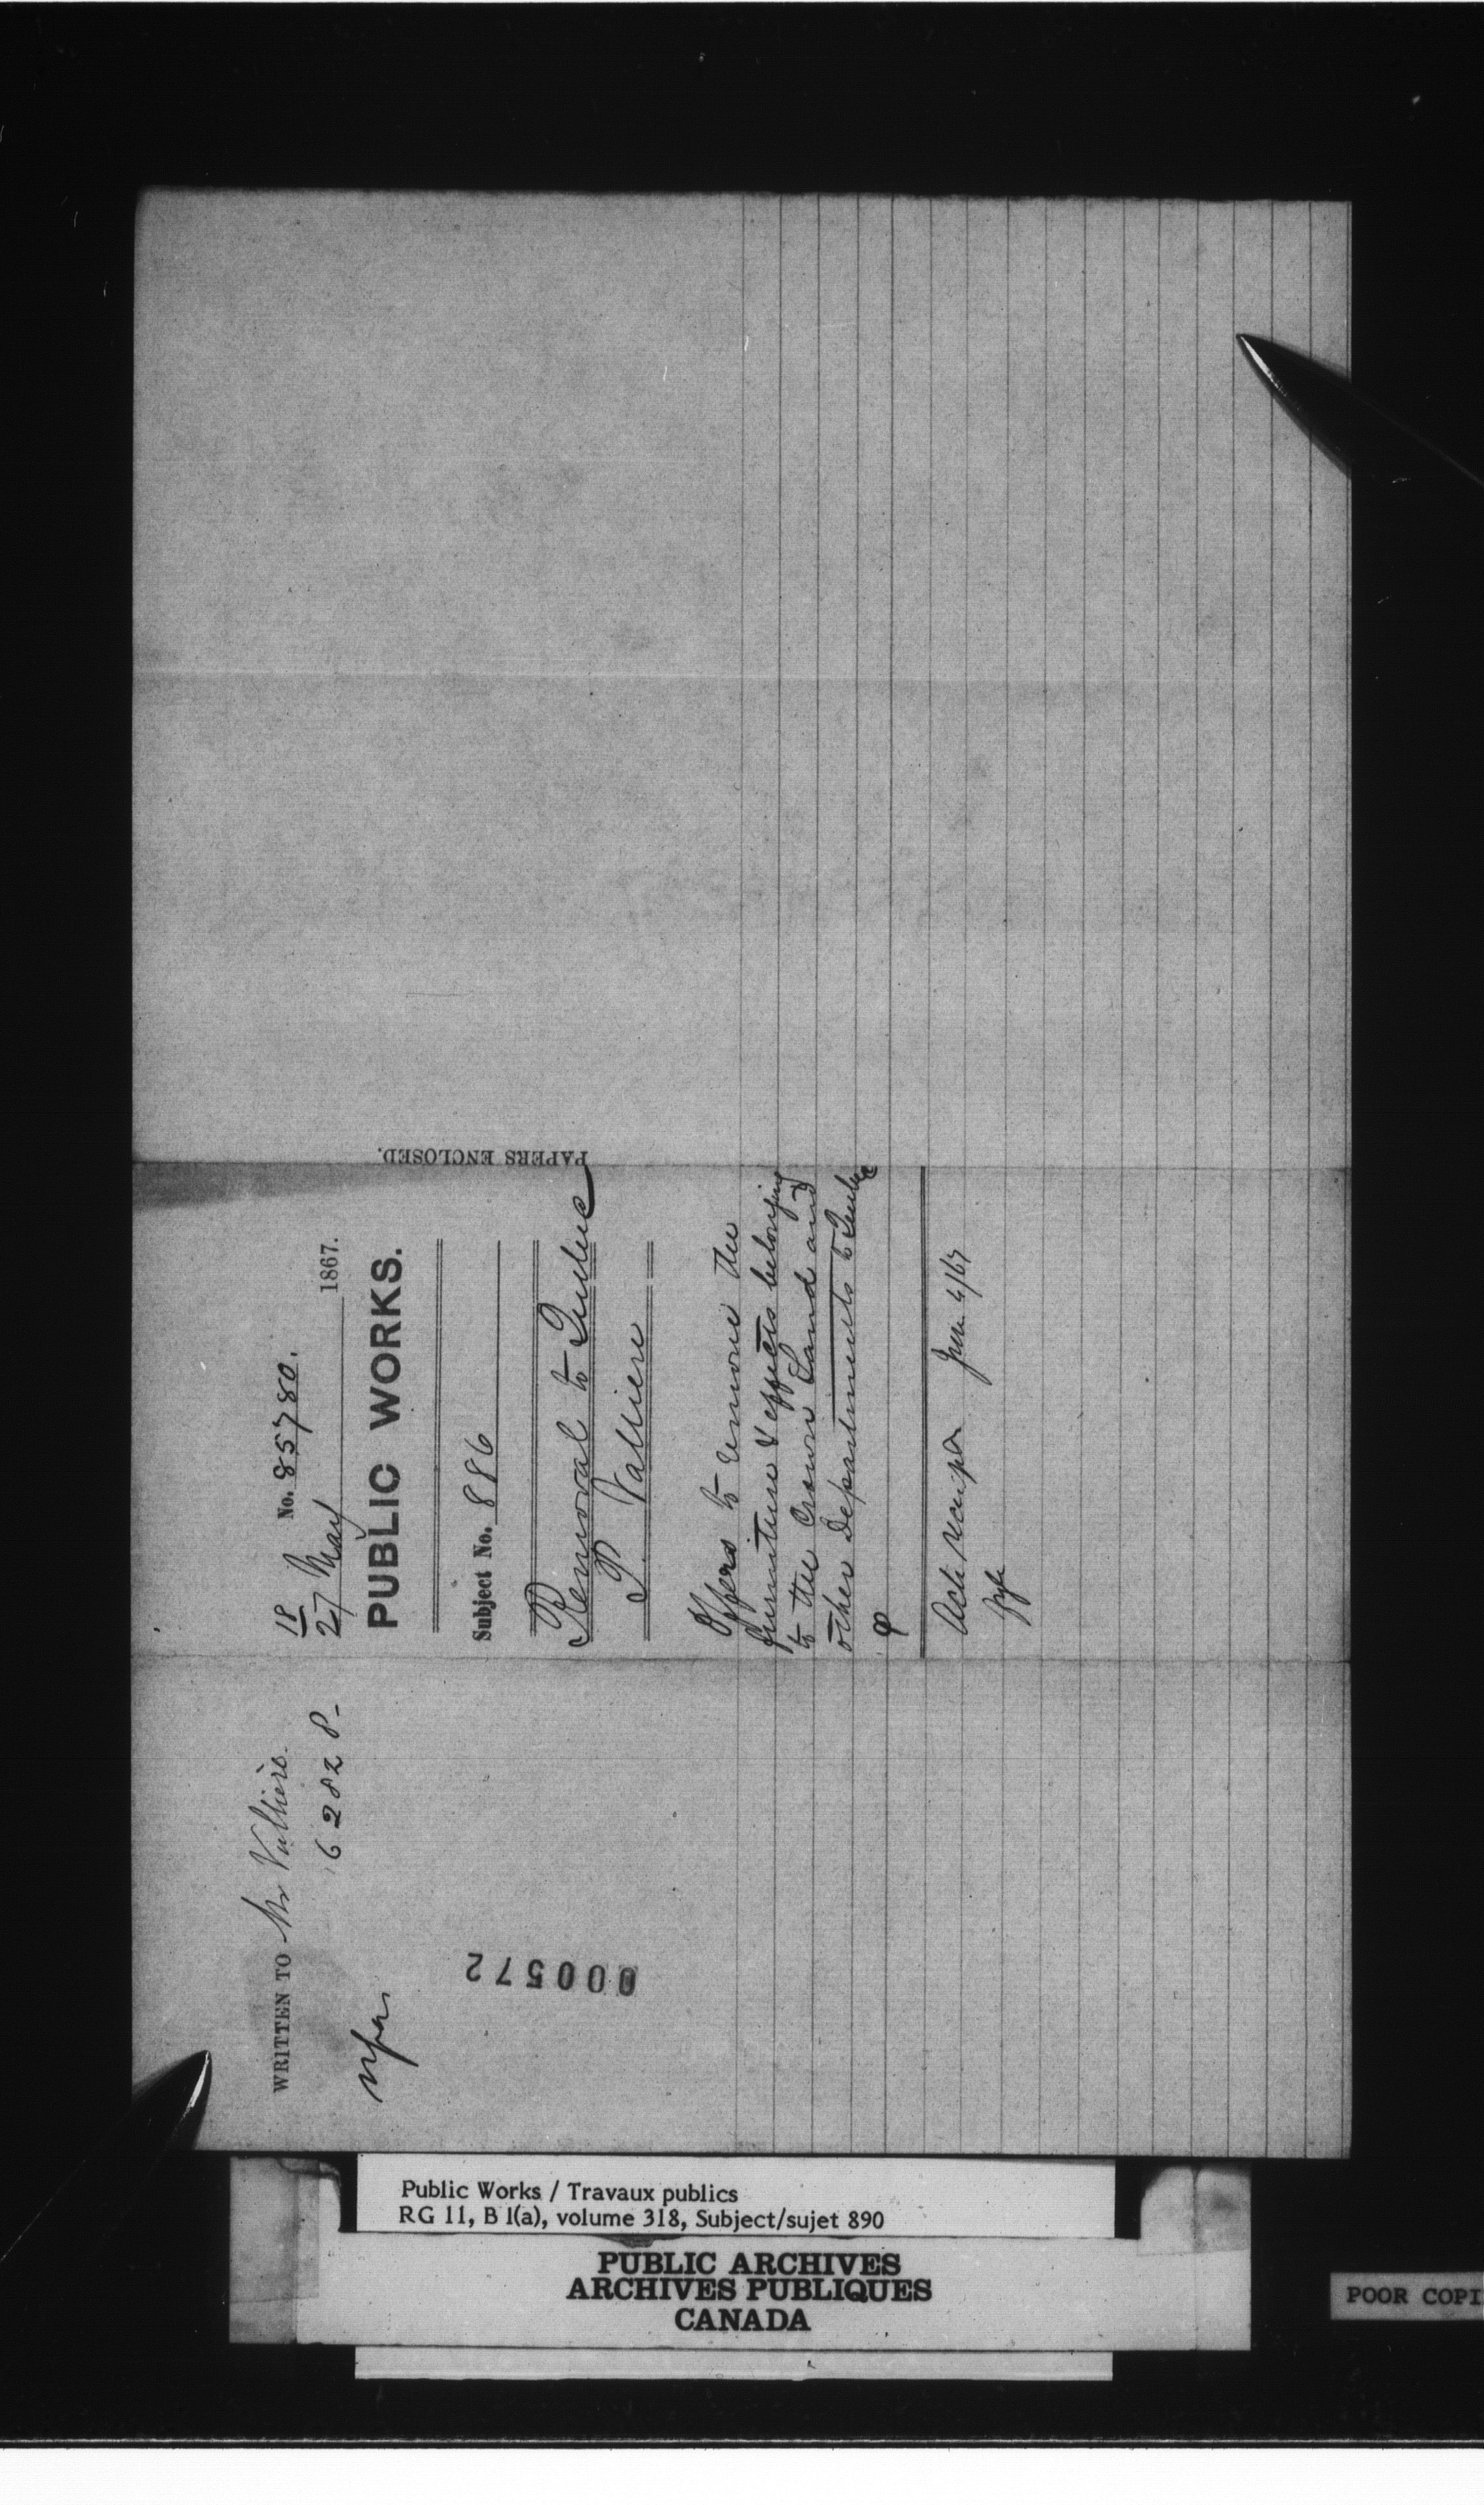 WRITTEN TO Mr Vallière.
6282 P-
000572
18 No. 85780.
27 May 1867.
PUBLIC WORKS.
Subject No. 886
Removal to Quebec
P. Valliere
Offers to remove the
furniture & effects belonging
to the Crown Land and
other Departments to Quebec
Ack receipt June 4/67
PAPERS ENCLOSED.
Public Works / Travaux publics
RG 11, B 1(a), volume 318, Subject/sujet 890
PUBLIC ARCHIVES
ARCHIVES PUBLIQUES
CANADA
POOR COPI